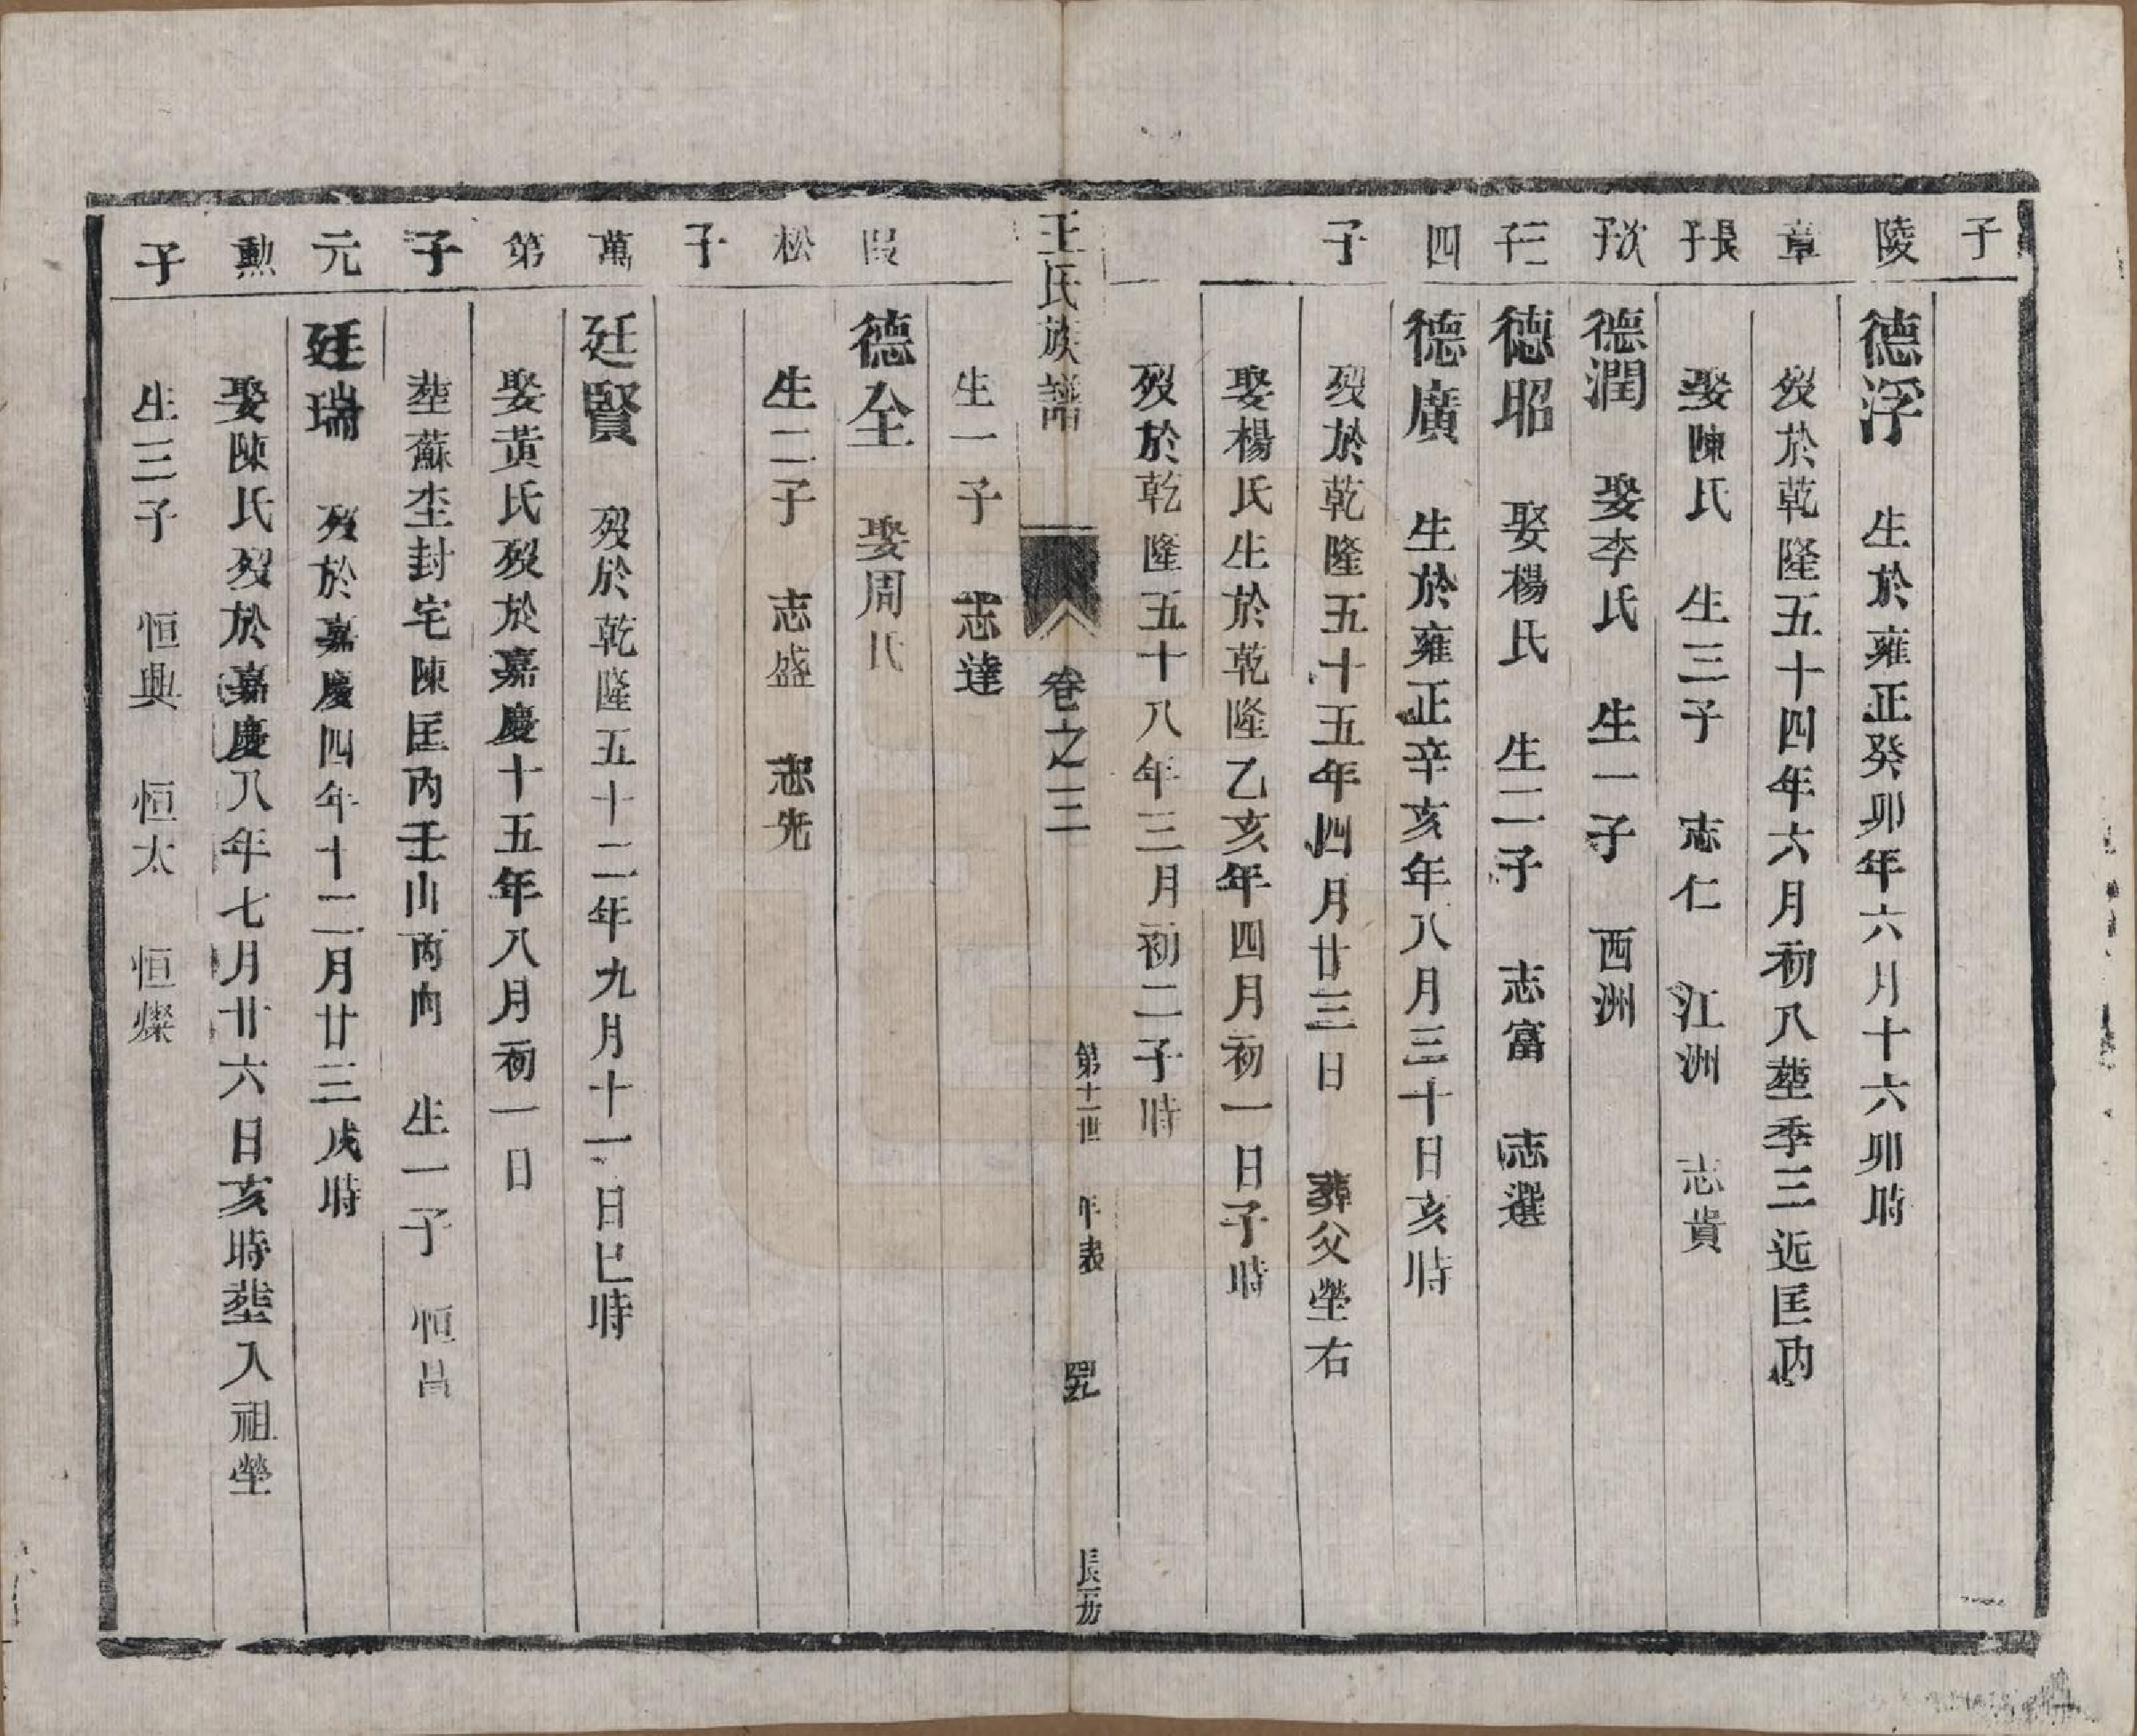 子
陵 德浮 生於雍正癸卯年六月十六卯時
章 歿於乾隆五十四年六月初八塟季三近匡內
長子 娶陳氏 生三子 志仁 江洲 志貴
次子 德潤 娶李氏 生一子 西洲
三子 德昭 娶楊氏 生二子 志富 志選
四 德廣 生於雍正辛亥年八月三十日亥時
子 歿於乾隆五十五年四月廿三日 葬父塋右
娶楊氏生於乾隆乙亥年四月初一日子時
歿於乾隆五十八年三月初二子時
王氏族譜 卷之三 第十一世 年表 四九 長二房
生一子 志達
德全 娶周氏
松 生二子 志盛 志先
子
萬 廷賢 歿於乾隆五十二年九月十一日巳時
第 娶黃氏歿於嘉慶十五年八月初一日
子 塟蘇坔封宅陳匡內壬山丙向 生一子 恒昌
元 廷瑞 歿於嘉慶四年十二月廿三戌時
勲 娶陳氏歿於嘉慶八年七月廿六日亥時塟入祖塋
子 生三子 恒興 恒太 恒燦